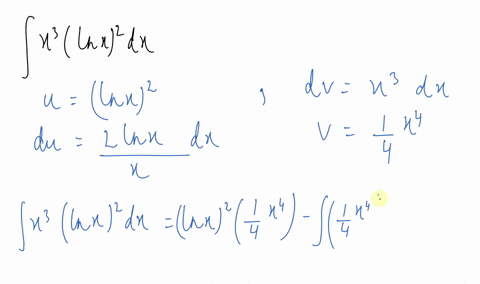 ∫ x³ (ln x)² dx
u = (ln x)² , dv = x³ dx
du = 2 ln x / x dx v = 1/4 x⁴
∫ x³ (ln x)² dx = (ln x)² (1/4 x⁴) - ∫ (1/4 x⁴